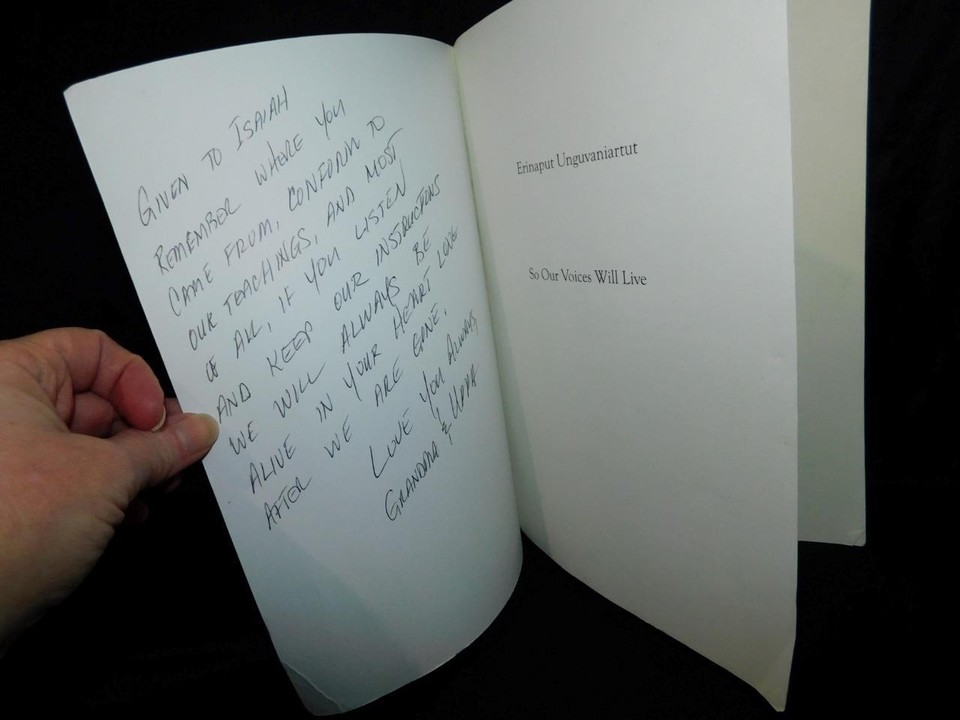 GIVEN TO ISAIAH
REMEMBER WHERE YOU
CAME FROM, CONFORM TO
OUR TEACHINGS, AND MOST
OF ALL, IF YOU LISTEN
AND KEEP OUR INSTRUCTIONS
WE WILL ALWAYS BE
ALIVE IN YOUR HEART LONG
AFTER WE ARE GONE.
LOVE YOU ALWAYS,
GRANDMA & UPPA
Erinaput Unguvaniartut
So Our Voices Will Live